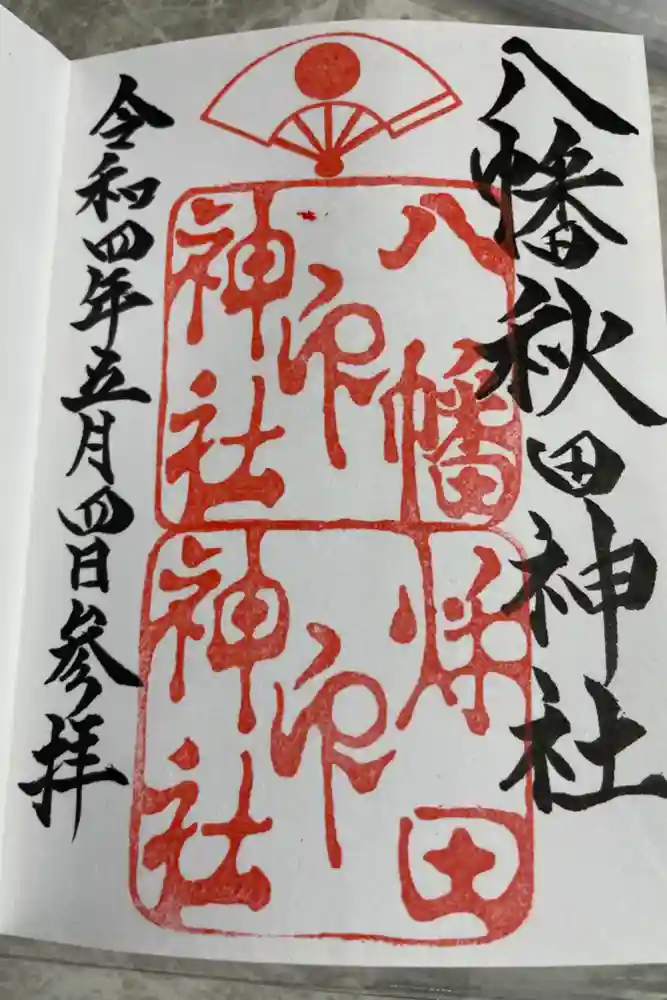 八幡秋田神社
八幡
神社印
秋田
神社印
令和四年五月四日参拝